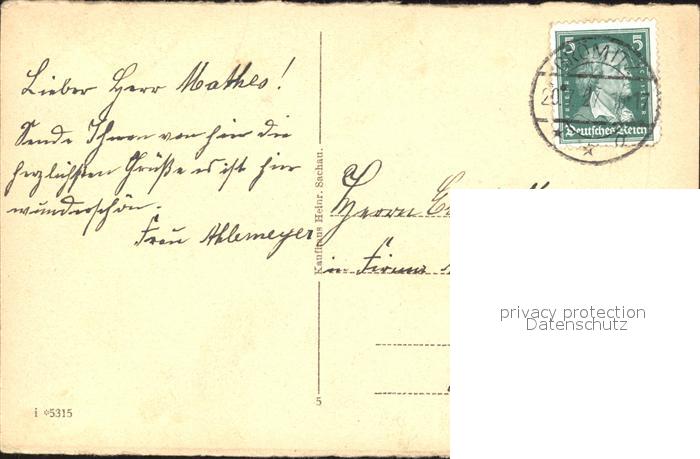 Lieber Herr Mathes!
Sende Ihnen von hier die
herzlichsten Grüße es ist hier
wunderschön.
Frau Ahlemeyer
Kaufhaus Heinr. Sachau.
5
i *5315
5 5
Deutsches Reich
DÖMITZ
20.
Herrn
in Firma
privacy protection
Datenschutz